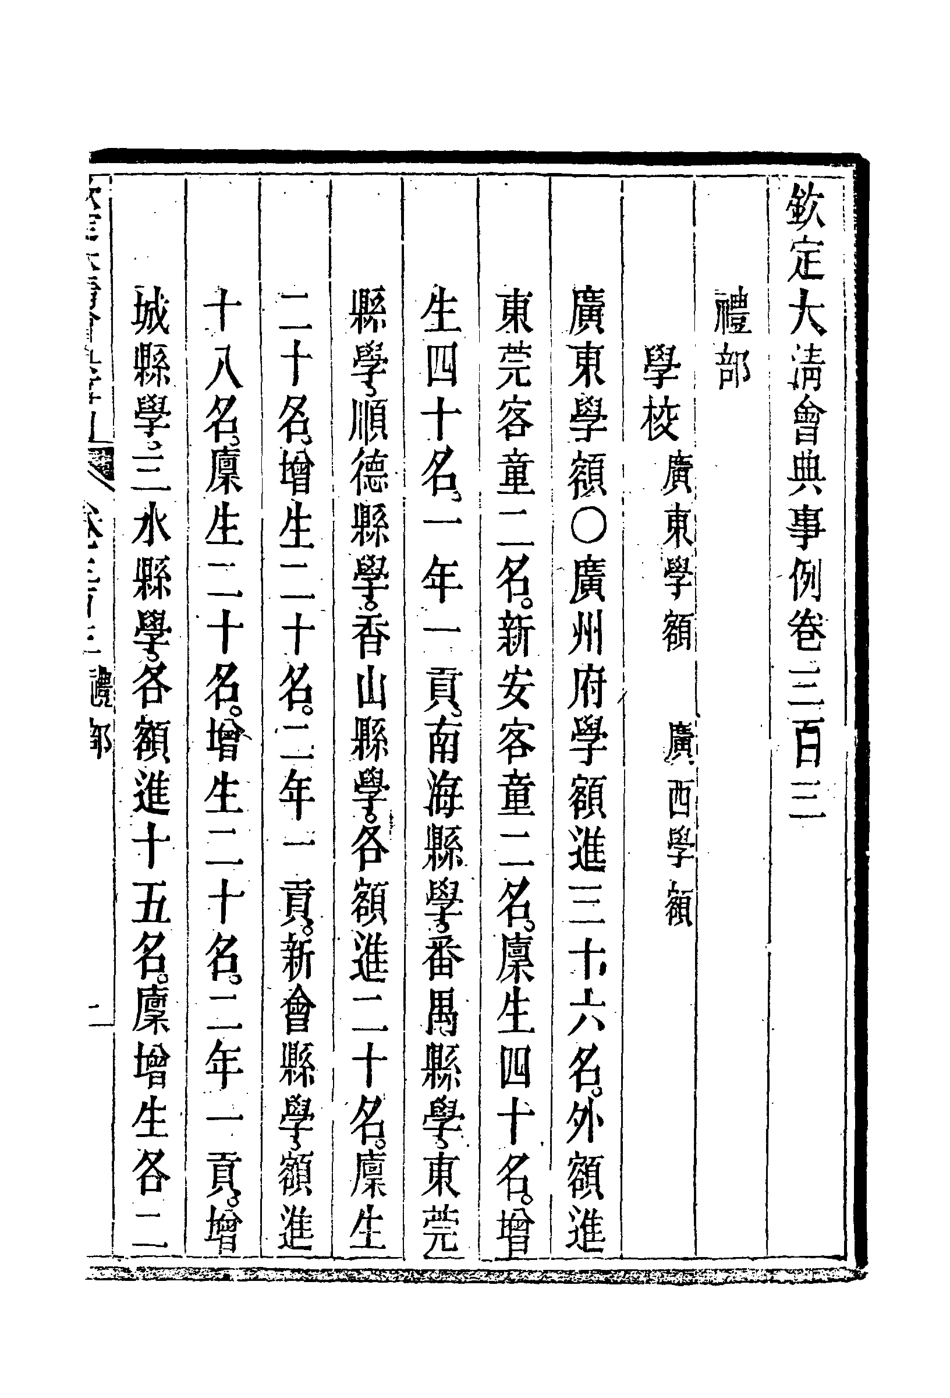 欽定大清會典事例卷三百三
禮部
學校廣東學額　廣西學額
廣東學額〇廣州府學額進三十六名。外額進
東莞客童二名。新安客童二名。廩生四十名。增
生四十名。一年一貢。南海縣學、番禺縣學、東莞
縣學、順德縣學。香山縣學。各額進二十名。廩生
二十名。增生二十名。二年一貢。新會縣學、額進
十八名。廩生二十名。增生二十名。二年一貢。增
城縣學。三水縣學、各額進十五名。廩增生各二
卷三百三 禮部 一